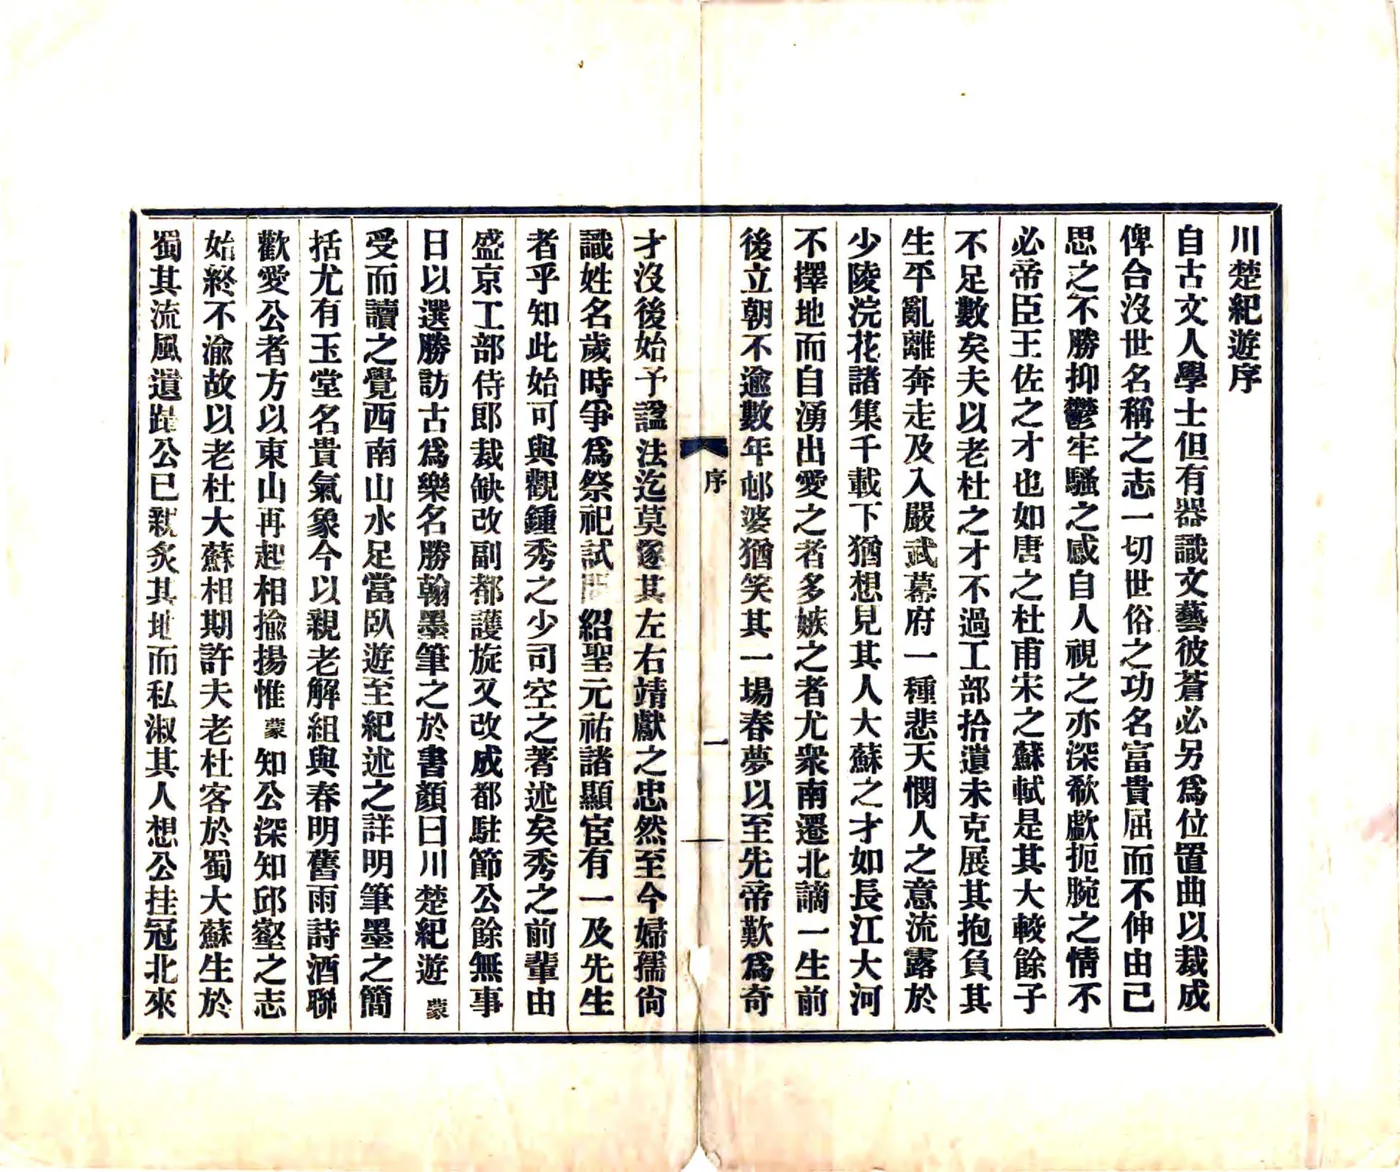 川楚紀遊序
自古文人學士但有器識文藝彼蒼必另爲位置曲以裁成
俾合沒世名稱之志一切世俗之功名富貴屈而不伸由己
思之不勝抑鬱牢騷之感自人視之亦深欷歔扼腕之情不
必帝臣王佐之才也如唐之杜甫宋之蘇軾是其大較餘子
不足數矣夫以老杜之才不過工部拾遺未克展其抱負其
生平亂離奔走及入嚴武幕府一種悲天憫人之意流露於
少陵浣花諸集千載下猶想見其人大蘇之才如長江大河
不擇地而自湧出愛之者多嫉之者尤衆南遷北謫一生前
後立朝不逾數年邨婆猶笑其一場春夢以至先帝歎爲奇
序
一
才沒後始予諡法迄莫遂其左右靖獻之忠然至今婦孺尙
識姓名歲時爭爲祭祀試問紹聖元祐諸顯宦有一及先生
者乎知此始可與觀鍾秀之少司空之著述矣秀之前輩由
盛京工部侍郎裁缺改副都護旋又改成都駐節公餘無事
日以選勝訪古爲樂名勝翰墨筆之於書顏曰川楚紀遊蒙
受而讀之覺西南山水足當臥遊至紀述之詳明筆墨之簡
括尤有玉堂名貴氣象今以親老解組與春明舊雨詩酒聯
歡愛公者方以東山再起相揄揚惟蒙知公深知邱壑之志
始終不渝故以老杜大蘇相期許夫老杜客於蜀大蘇生於
蜀其流風遺躅公已親炙其地而私淑其人想公挂冠北來